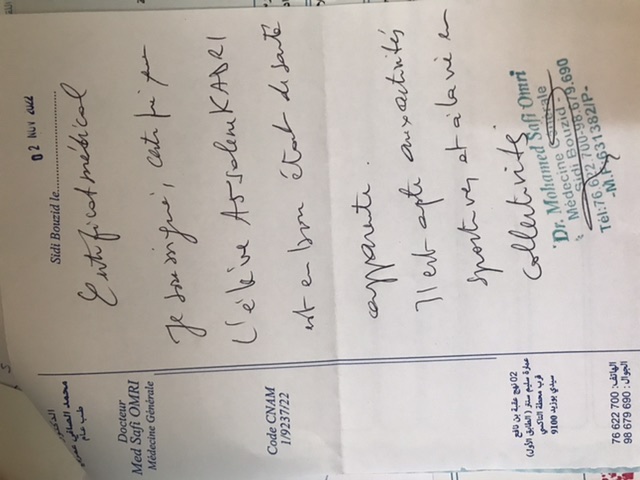 Docteur
Med Safi OMRI
Médecine Générale
Code CNAM
1/9237/22
02 نهج عقبة بن نافع
عمارة سليم سنتر (الطابق الأول)
قرب محطة التاكسي
سيدي بوزيد 9100
الهاتف: 76 622 700
الجوال: 98 679 690
Sidi Bouzid le 02 NOV 2022
Certificat médical
Je soussigné, certifie que
L'élève Assalem KADRI
est en bon état de santé
apparente.
Il est apte aux activités
sportives et à la vie en
collectivité
Dr. Mohamed Safi Omri
Médecine Générale
Sidi Bouzid
Tél: 76 622 700 - 98 679 690